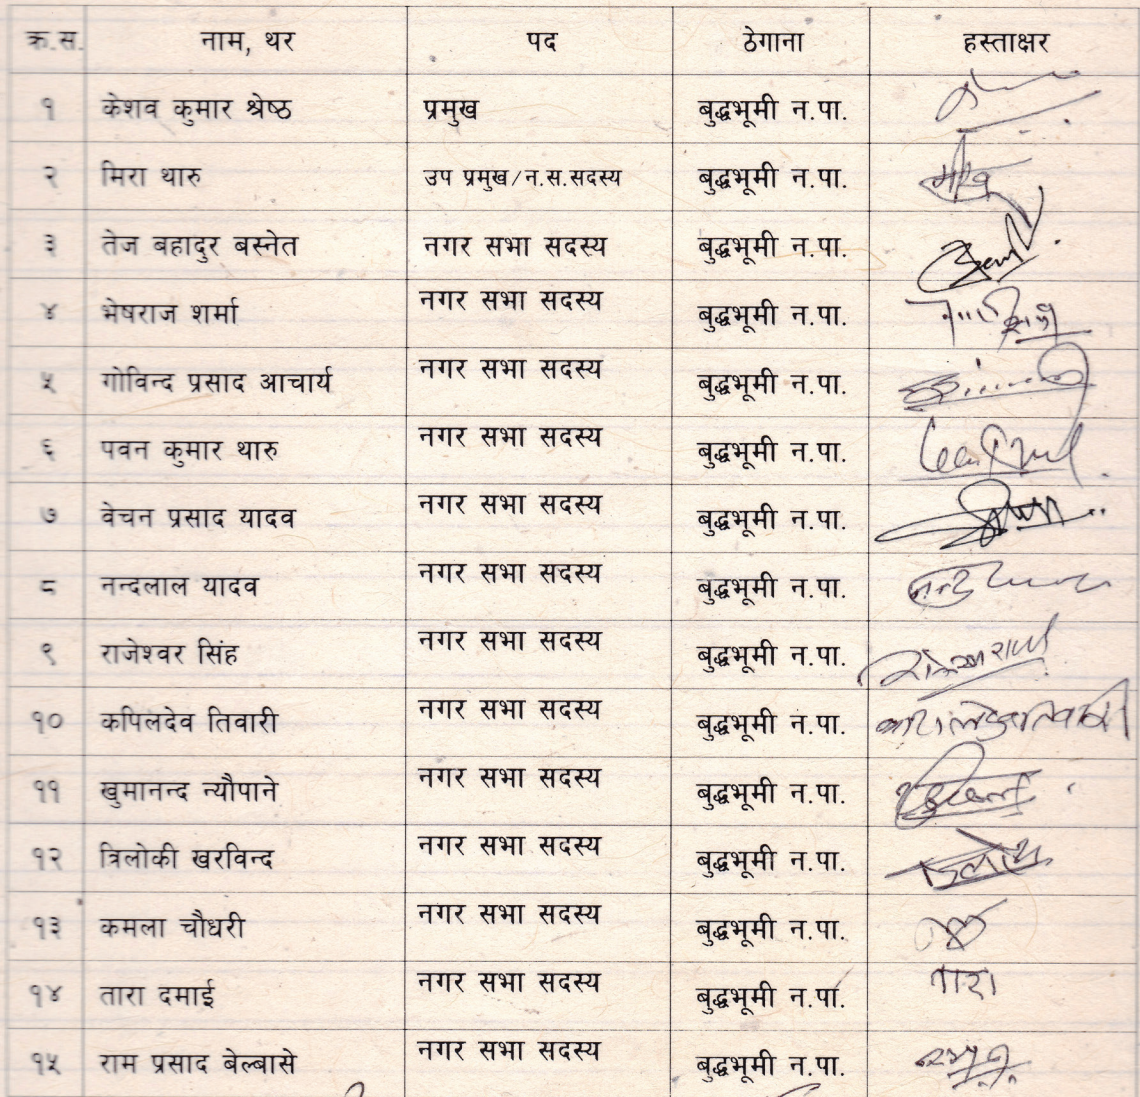 क्र.स. नाम, थर पद ठेगाना हस्ताक्षर
१ केशव कुमार श्रेष्ठ प्रमुख बुद्धभूमी न.पा.
२ मिरा थारु उप प्रमुख/न.स.सदस्य बुद्धभूमी न.पा.
३ तेज बहादुर बस्नेत नगर सभा सदस्य बुद्धभूमी न.पा.
४ भेषराज शर्मा नगर सभा सदस्य बुद्धभूमी न.पा.
५ गोविन्द प्रसाद आचार्य नगर सभा सदस्य बुद्धभूमी न.पा.
६ पवन कुमार थारु नगर सभा सदस्य बुद्धभूमी न.पा.
७ वेचन प्रसाद यादव नगर सभा सदस्य बुद्धभूमी न.पा.
८ नन्दलाल यादव नगर सभा सदस्य बुद्धभूमी न.पा.
९ राजेश्वर सिंह नगर सभा सदस्य बुद्धभूमी न.पा.
१० कपिलदेव तिवारी नगर सभा सदस्य बुद्धभूमी न.पा.
११ खुमानन्द न्यौपाने नगर सभा सदस्य बुद्धभूमी न.पा.
१२ त्रिलोकी खरविन्द नगर सभा सदस्य बुद्धभूमी न.पा.
१३ कमला चौधरी नगर सभा सदस्य बुद्धभूमी न.पा.
१४ तारा दमाई नगर सभा सदस्य बुद्धभूमी न.पा. तारा
१५ राम प्रसाद बेल्बासे नगर सभा सदस्य बुद्धभूमी न.पा.